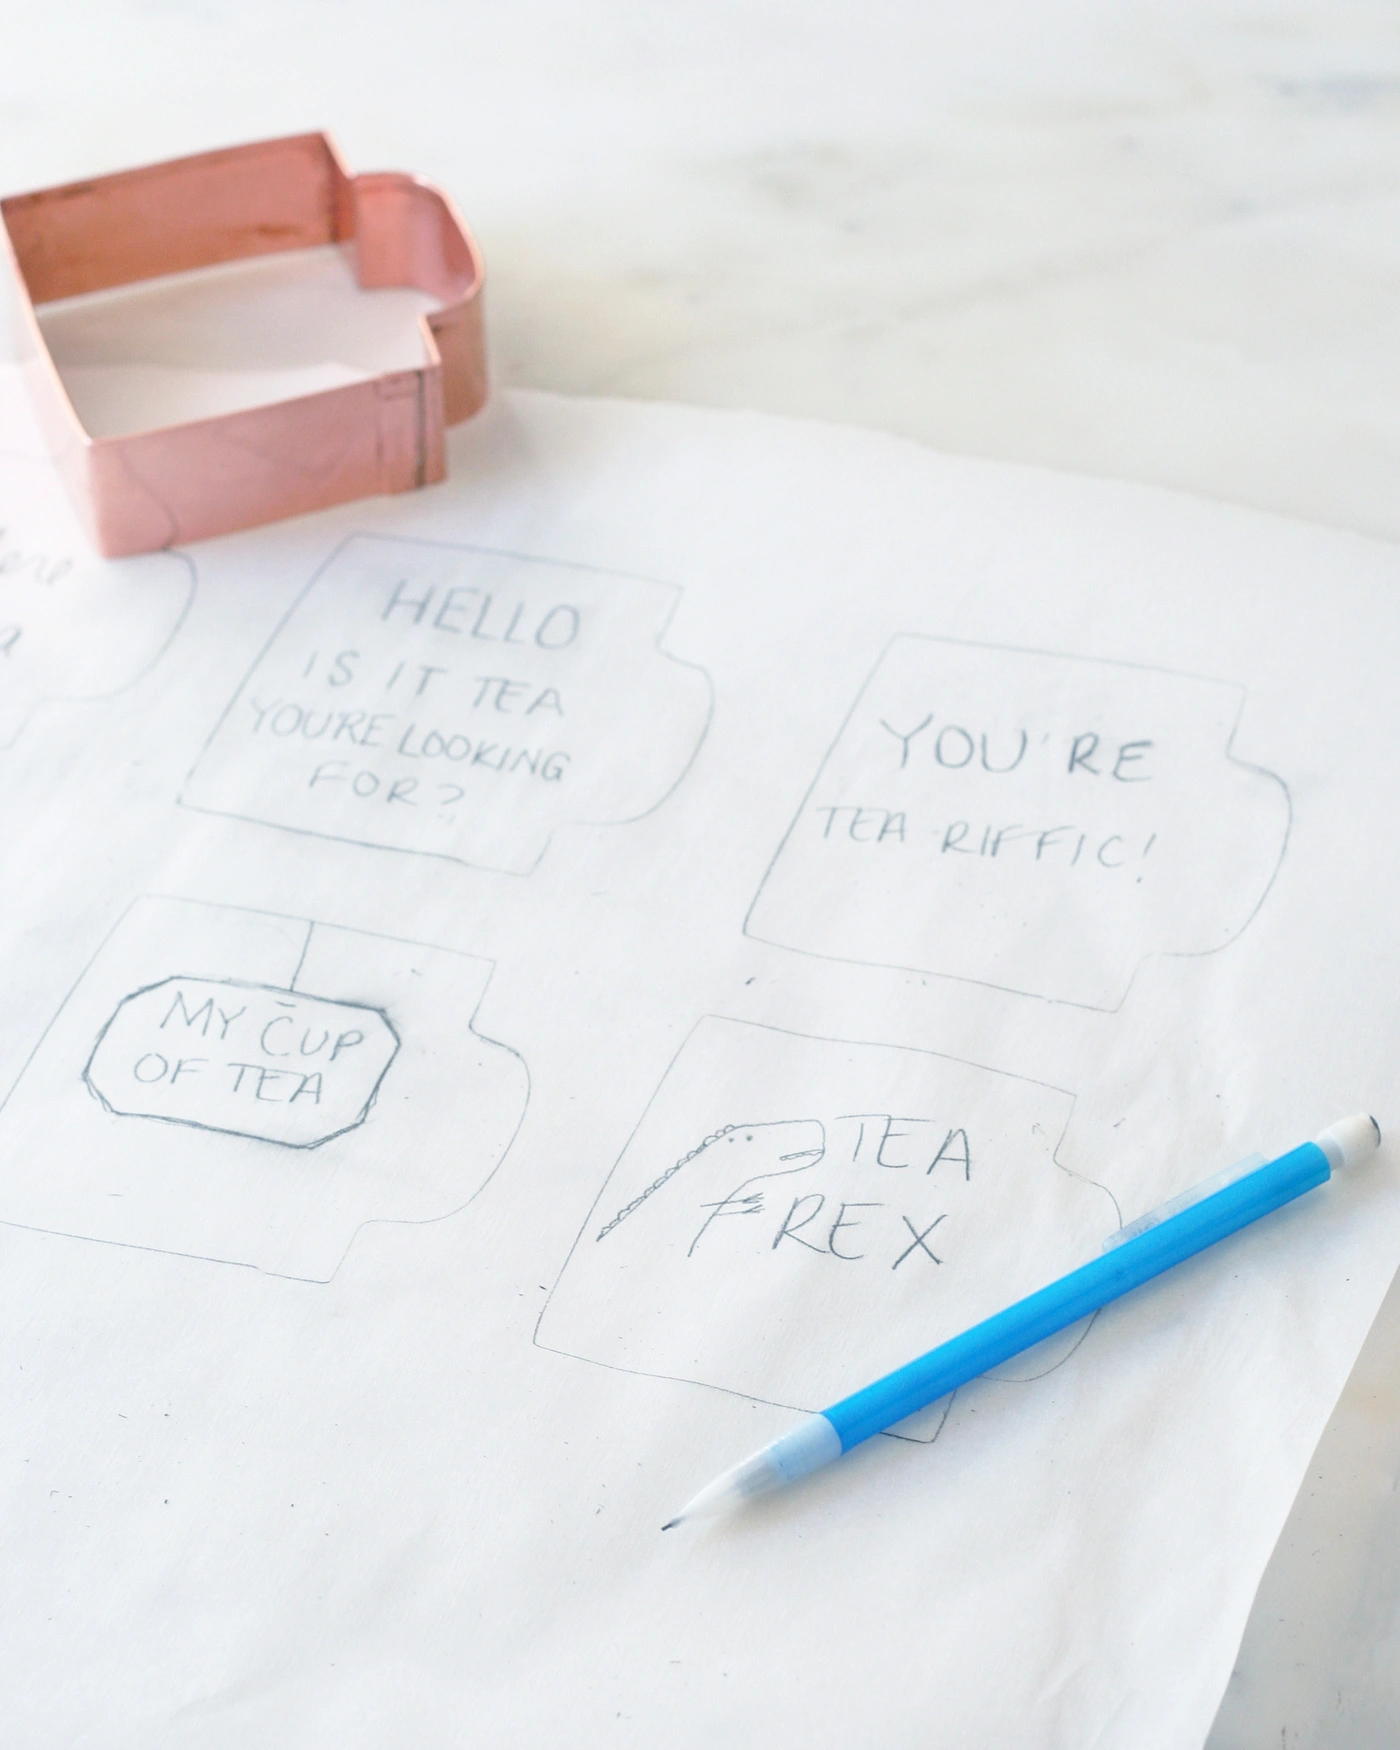 HELLO
IS IT TEA
YOU'RE LOOKING
FOR?
YOU'RE
TEA RIFFIC!
MY CUP
OF TEA
TEA
REX